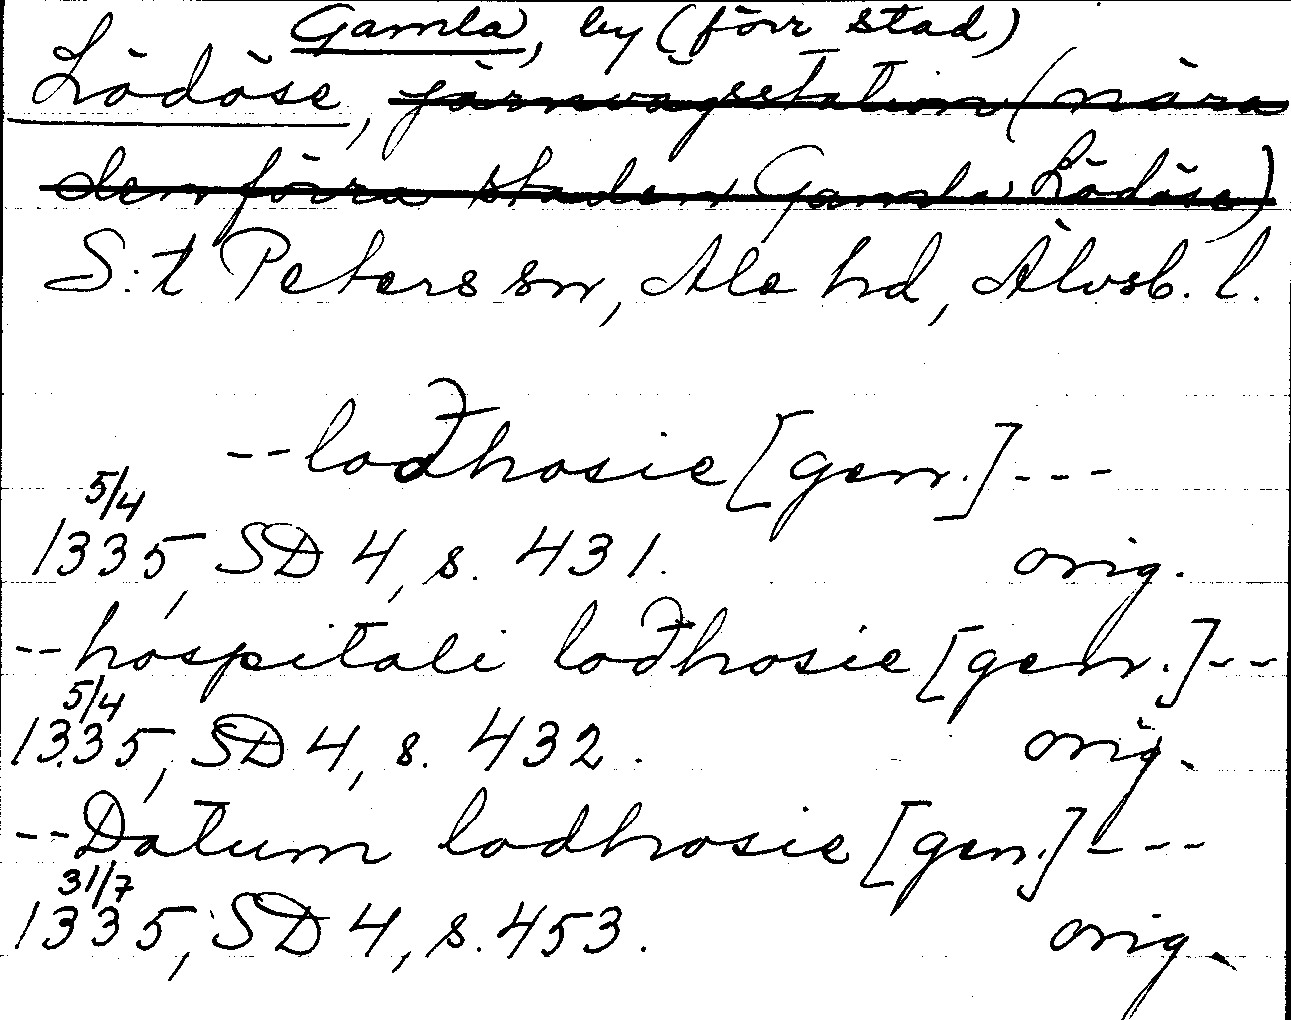 Gamla, by (förr stad)
Lödöse, järnvägsstation (nära
den förra staden Gamla Lödöse)
S:t Peters sn, Ale hd, Älvsb. l.
--loðhosie [gen.]---
5/4
1335, SD 4, s. 431. orig.
--hospitali loðhosie [gen.]--
5/4
1335, SD 4, s. 432. orig.
--Datum lodhosie [gen.]---
31/7
1335, SD 4, s. 453. orig.